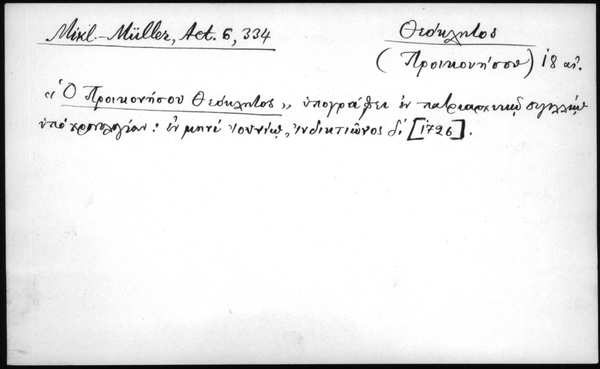 Mixl-Müller, Act. 6, 334
Θεόκλητος
(Προικονήσου) 18 αἰ.
"Ὁ Προικονήσου Θεόκλητος" ὑπογράφει ἐν πατριαρχικῷ σιγιλλίῳ
ὑπὸ χρονολογίαν: ἐν μηνὶ Ἰουνίῳ, Ἰνδικτιῶνος δ΄ [1726].